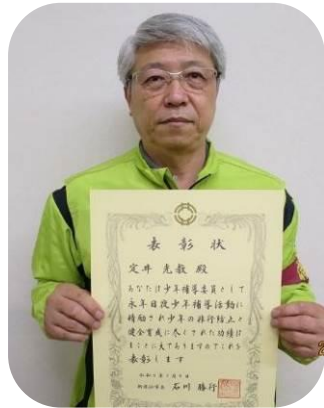 表彰状
定井 光敏 殿
あなたは少年補導委員として
永年日夜少年補導活動に
精励され少年の非行防止と
健全育成に尽くされた功績は
まことに大でありますのでこれを
表彰します
石川 勝行